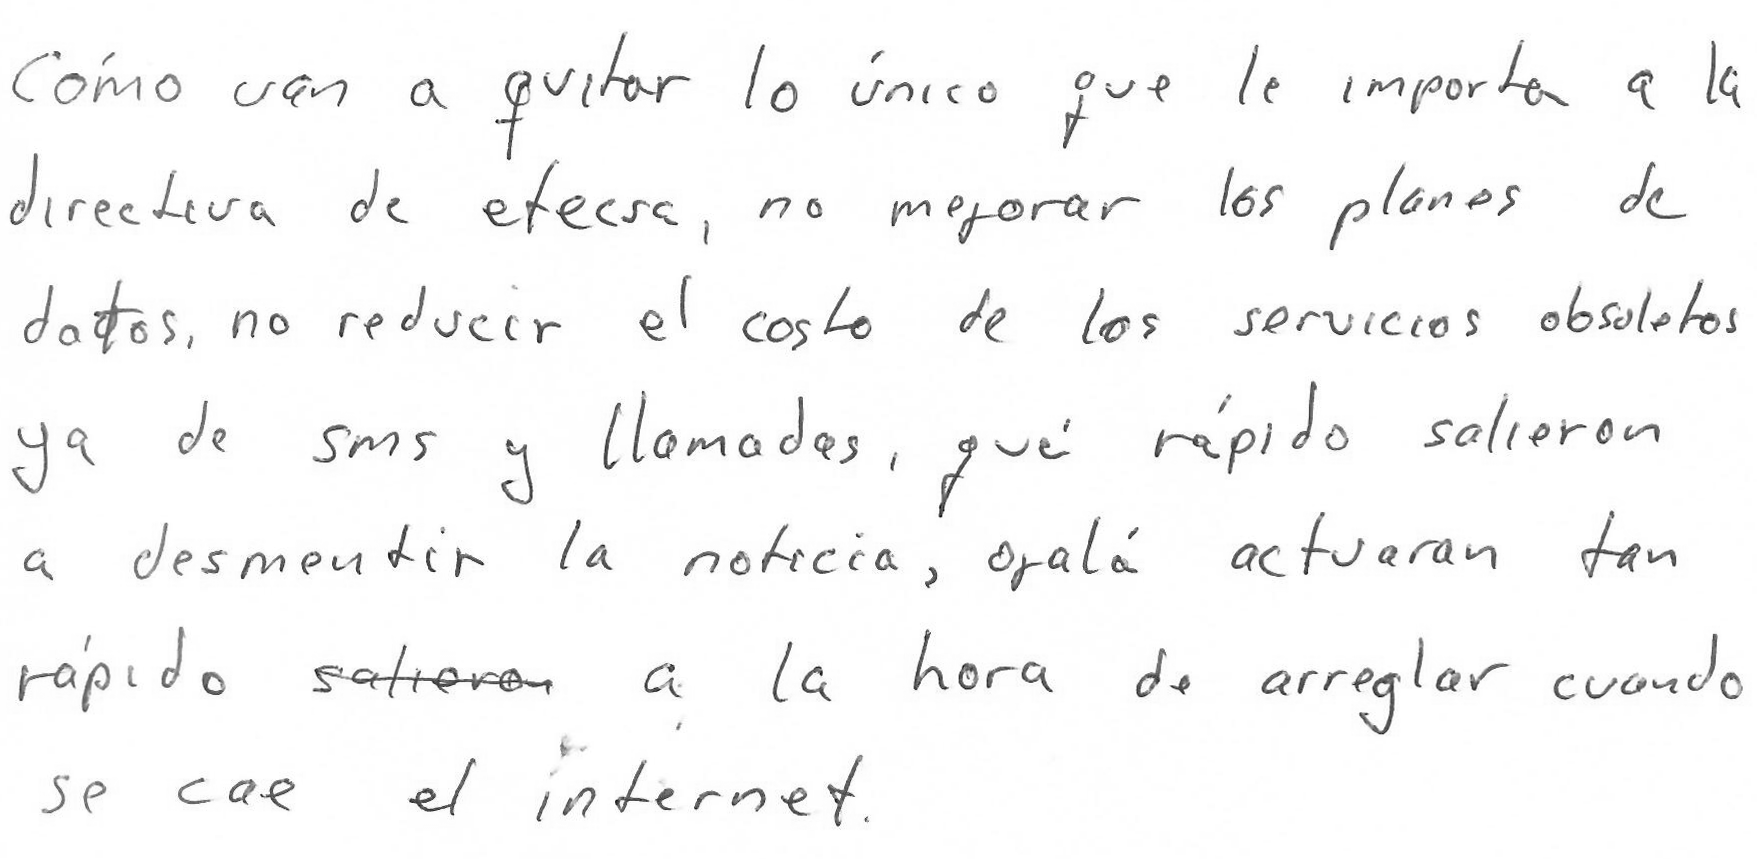 Cómo van a quitar lo único que le importa a la
directiva de etecsa, no mejorar los planes de
datos, no reducir el costo de los servicios obsoletos
ya de sms y llamadas, qué rápido salieron
a desmentir la noticia, ojalá actuaran tan
rápido salieron a la hora de arreglar cuando
se cae el internet.